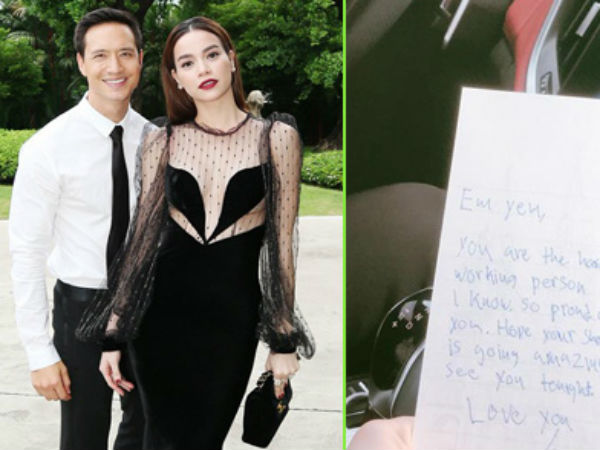 Em yeu,
You are the
working person
I know. so proud
you. Hope your
is going
see you tonight.
Love you